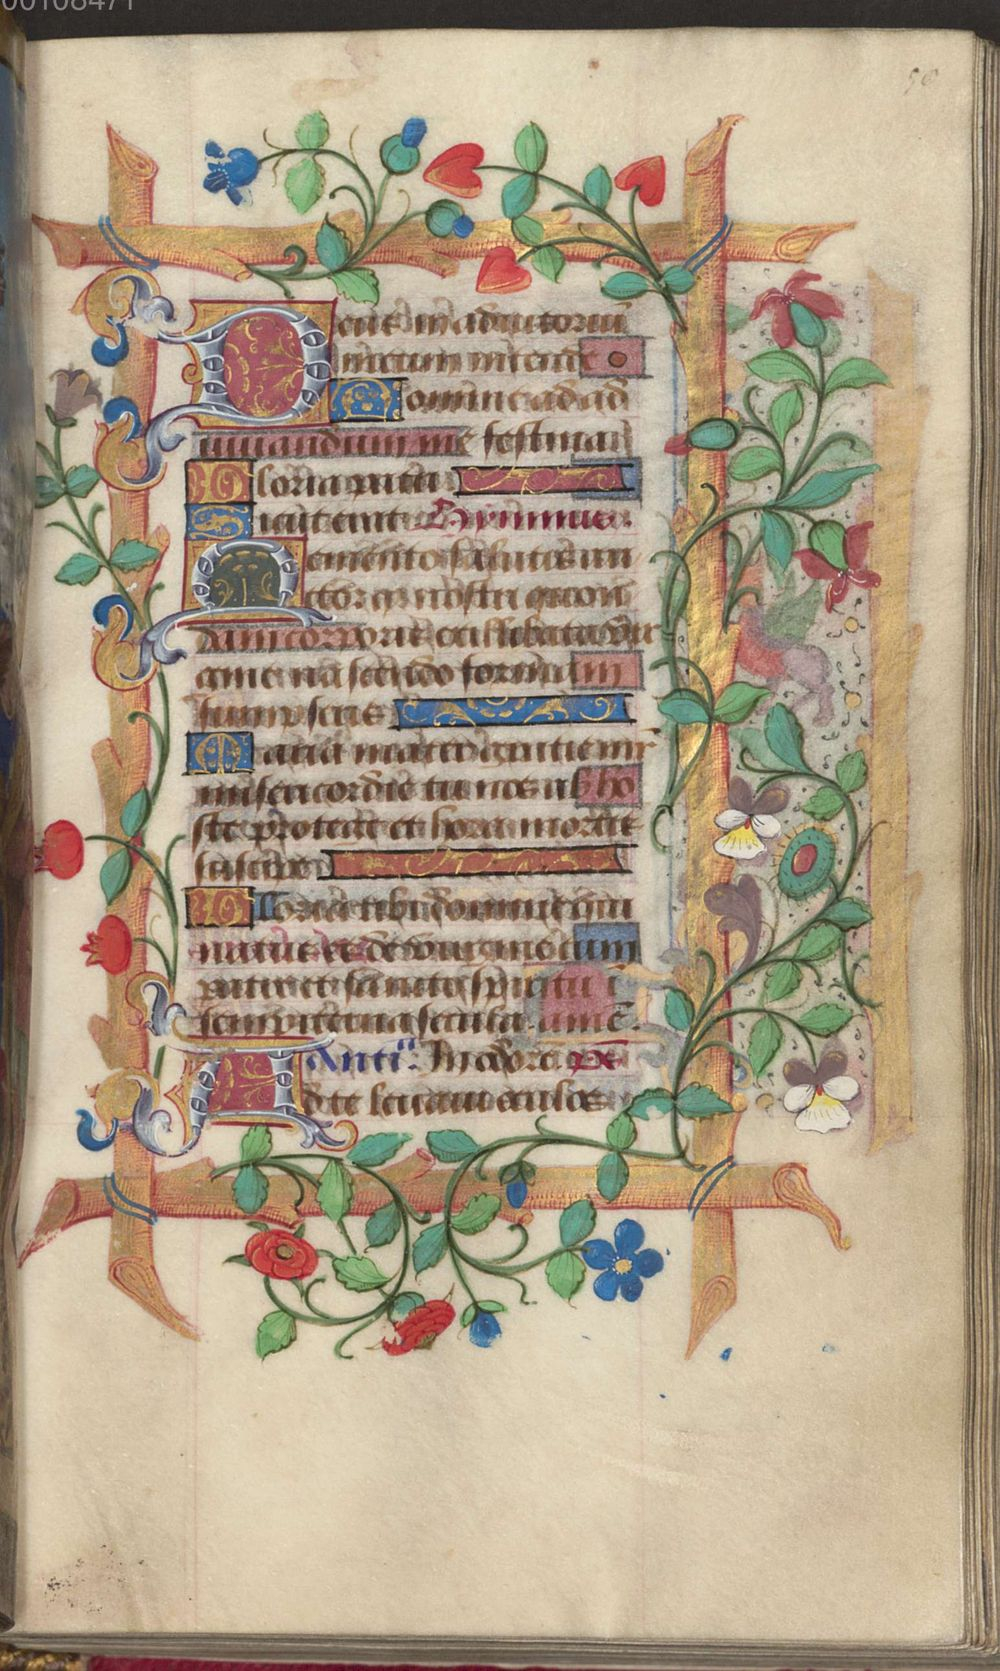 00108471
56
Deus in adiutoriū
meum intende
Domine ad ad
iuuandum me festinā
Gloria patri
Sicut erat Hymnus.
Memento salutis au
ctor q̄ nr̄i quon
dam corporis ex illibata vir
gine nascendo formam
sumpseris
Maria mater gratie mr̄
misericordie tu nos ab ho
ste protege et hora mortis
suscipe
Gloria tibi domine qui
natus es de virgine cum
patre et sancto spiritu ī
sempiterna secula. amē.
Antiᵃ. In odorē. ps̄
Ad te leuaui oculos